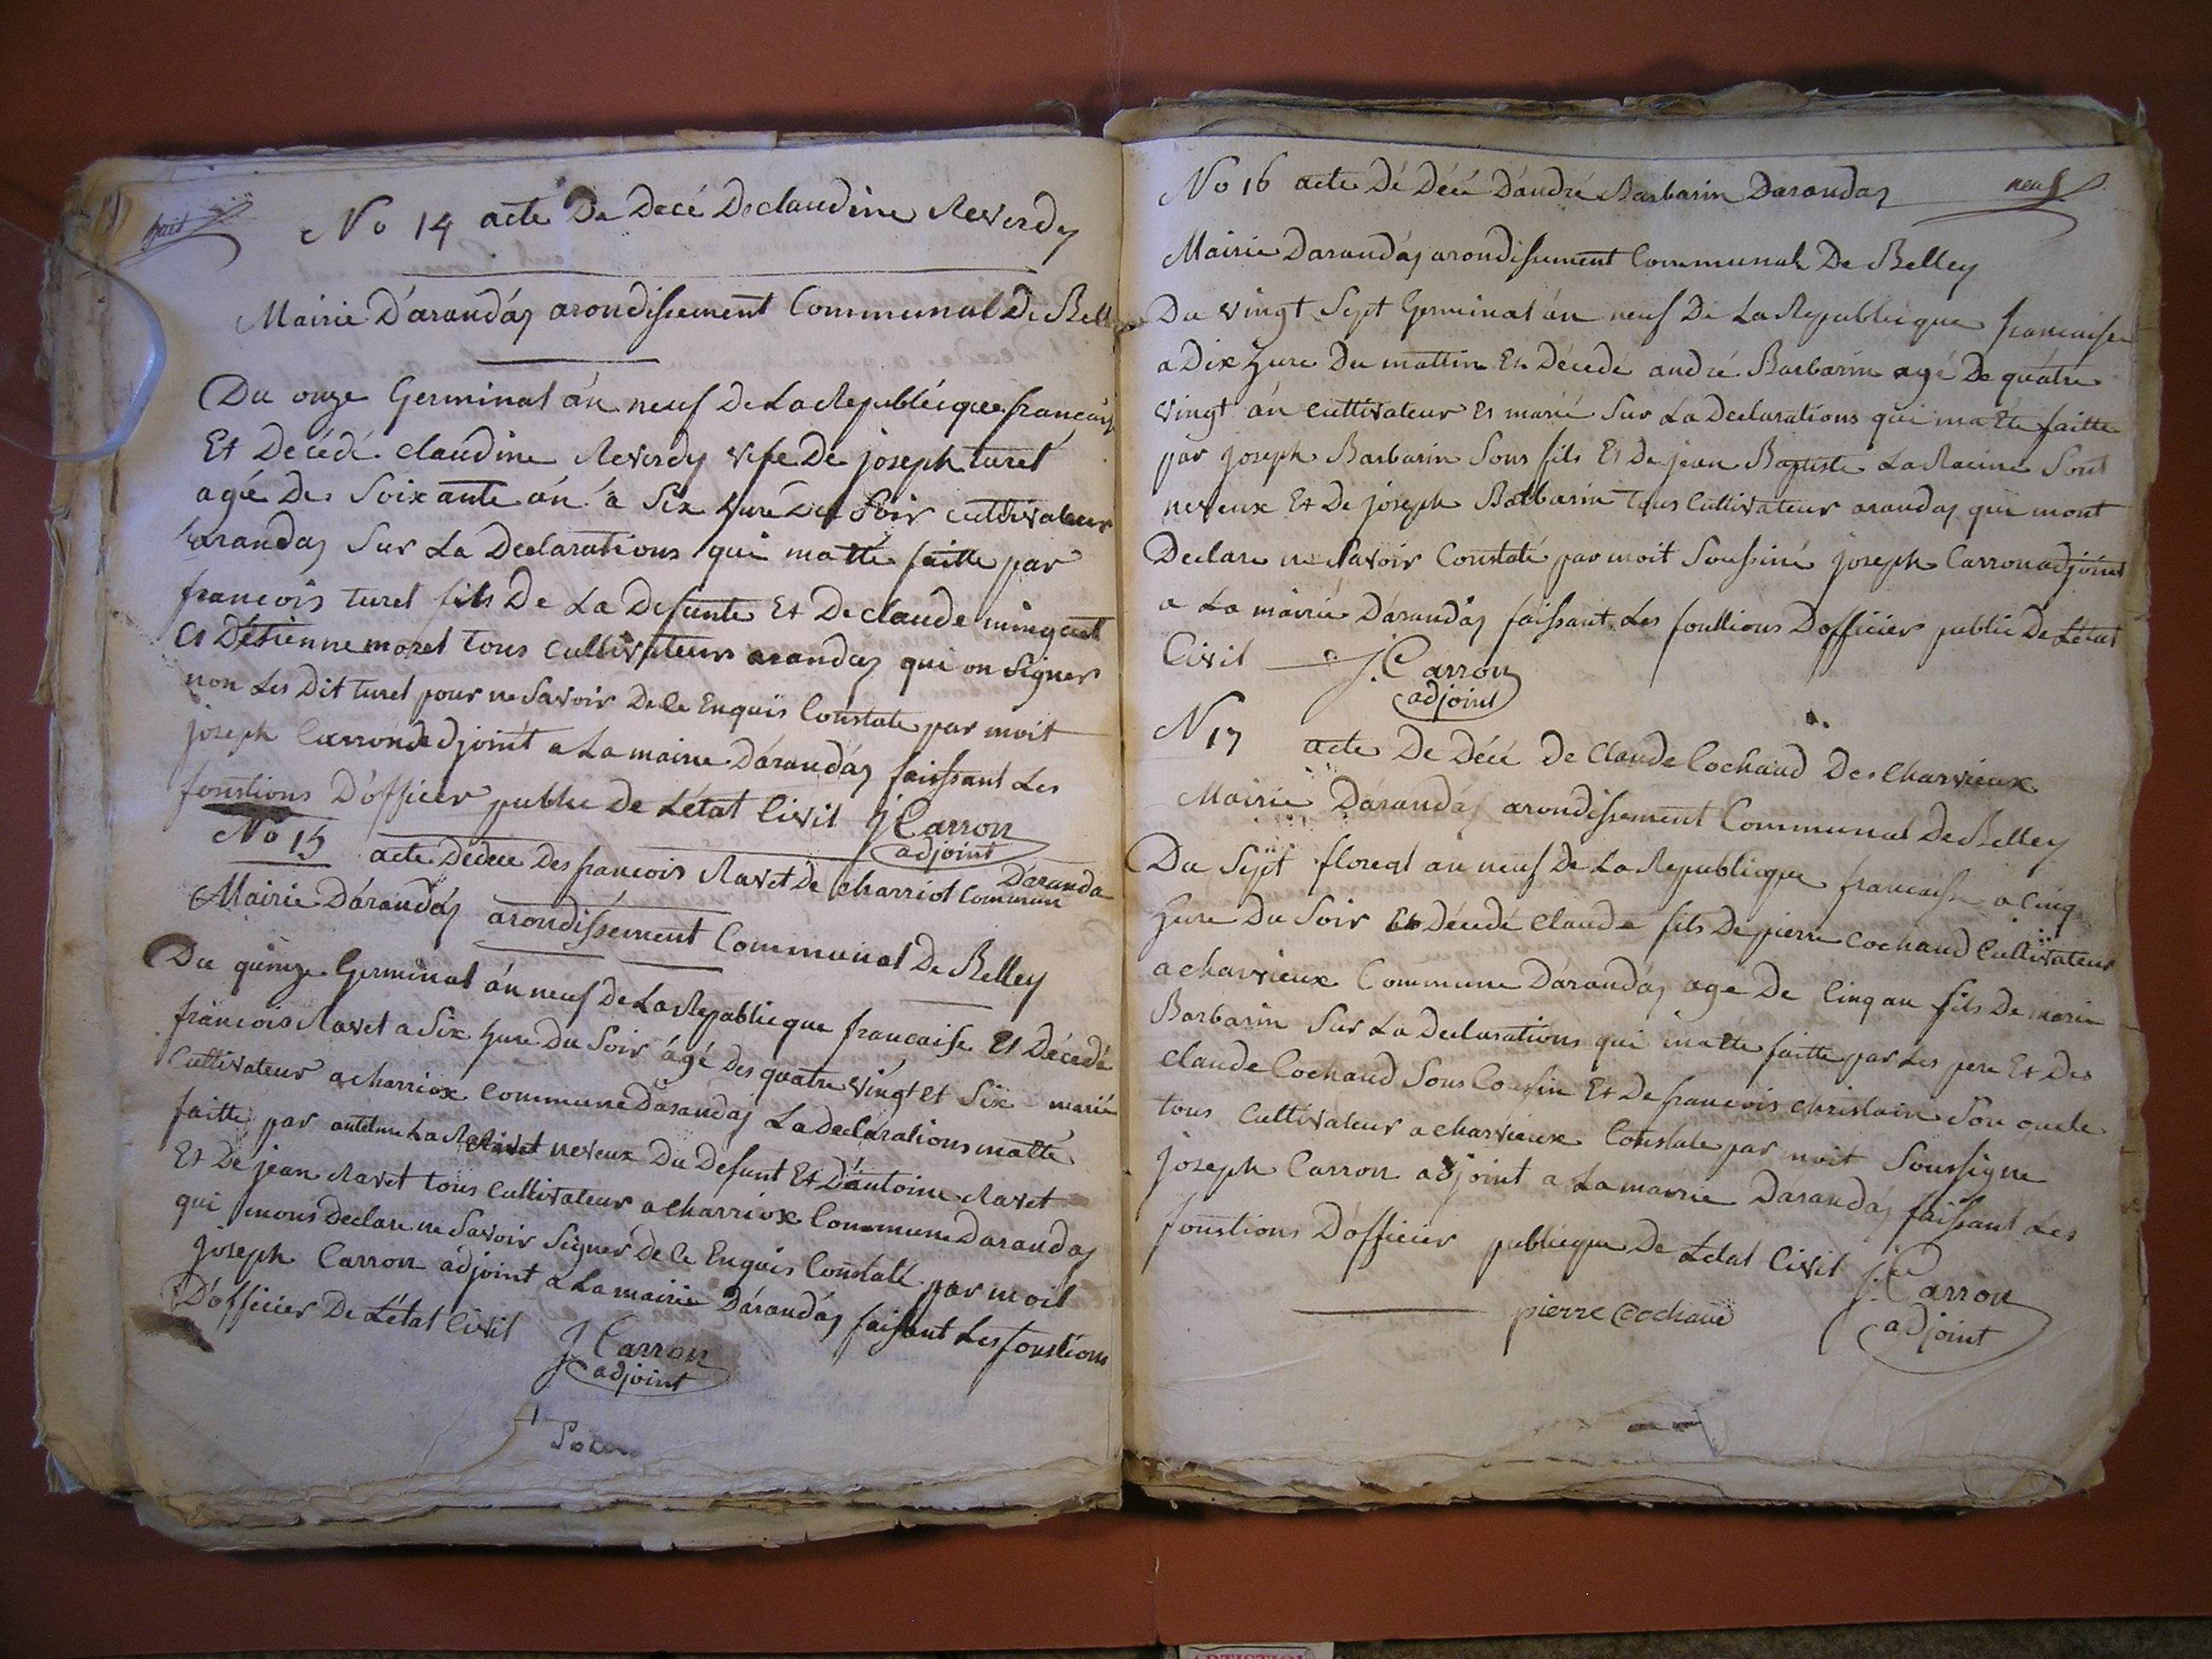 fait
No 14 acte De Decé De claudine Reverdy
Mairie D'arandas arondissement Communal De Bell
Du onze Germinal án neuf De La Republécque françois
Et Decédé claudine Reverdy vefe De joseph turel
agée Des Soixante án a Six hure Du Soir cultivateur
arandas Sur La Declarations qui matté faitte par
francois turel fils De La Defunte Et De claude
Et Détienne morel tous Cultivateurs arandas qui on Signer
non Les Dit turel pour ne Savoir De Ce Enquis Constate par moit
joseph Carron adjoint a La mairie D'arandás faissant Les
fonstions D'officier public De Létat Civil J. Carron
adjoint
No 15 acte De dece Des francois Ravet De Charriot Commun
Daranda
Mairie D'arandás arondissement Communal De Belley
Du quinze Germinal án neuf De La Republicque francaise Et Décedé
francois Ravet a Six hure Du Soir ágé Des quatre vingt et Six marié
Cultivateur a charriox Commune Darandas La declarations matté
faitte par antelme La Ravet neveux Du Defunt Et D'antoine Ravet
Et De jean Ravet tous Cultivateur a Charriox Commune Darandas
qui mons Declare ne Savoir Signer De Ce Enquis Constaté par moit
Joseph Carron adjoint a La mairie D'arandás faissant Les fonstions
D'officier De Létat Civil J. Carron
adjoint
neuf
No 16 acte Dé Décé D'andré Barbarin Darandas
Mairie Darandás arondissement Communal De Belley
Du vingt Sept Germinal án neuf De La Republicque francaise
a Dix hure Du mattin Et Décedé andré Barbarin agé De quátre
vingt án cultivateur Et marié Sur La Declarations qui ma Eté faitte
par joseph Barbarin Sons fils Et De jean Baptiste La Racine Sont
neveux Et De joseph Barbarin tous Cultivateur arandas qui mont
Declare ne Savoir Constaté par moit Soussiné joseph Carron adjoint
a La mairie D'arandás faissant Les fonltions Dofficier public De Létat
Civil J. Carron
adjoint
N 17 acte De Décé De Claude Cochaud Des Charvieux
Mairie D'arandás arondissement Communal De Belley
Du Sept floreal an neuf De La Republicque francaise a Cinq
hure Du Soir Et Décedé Claude fils De pierre Cochaud Cultivateur
a charvieux Commune D'arandás age De Cinq an fils De marie
Barbarin Sur La Declarations qui matté faitte par Les pere Et Des
Claude Cochaud Sons Cousin Et De francois christain Son oncle
tous Cultivateur a charvieux Constate par moit Soussigne
Joseph Carron adjoint a La mairie D'arandás faissant Les
fonstions D'officier publicque De Létat Civil J. Carron
pierre Cochaud adjoint